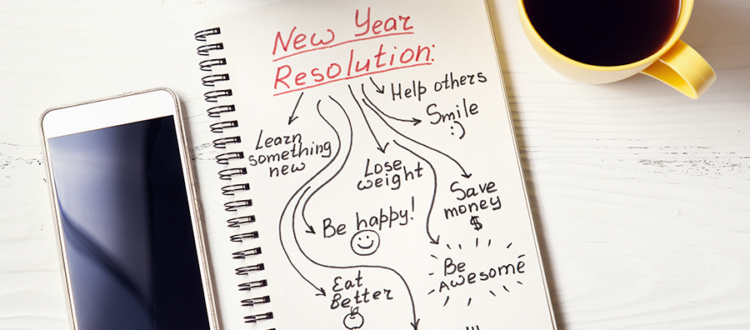 New Year
Resolution:
Help others
Smile
:)
Learn
something
new
Lose
weight
Save
money
$
Be happy!
Be
Awesome
Eat
Better